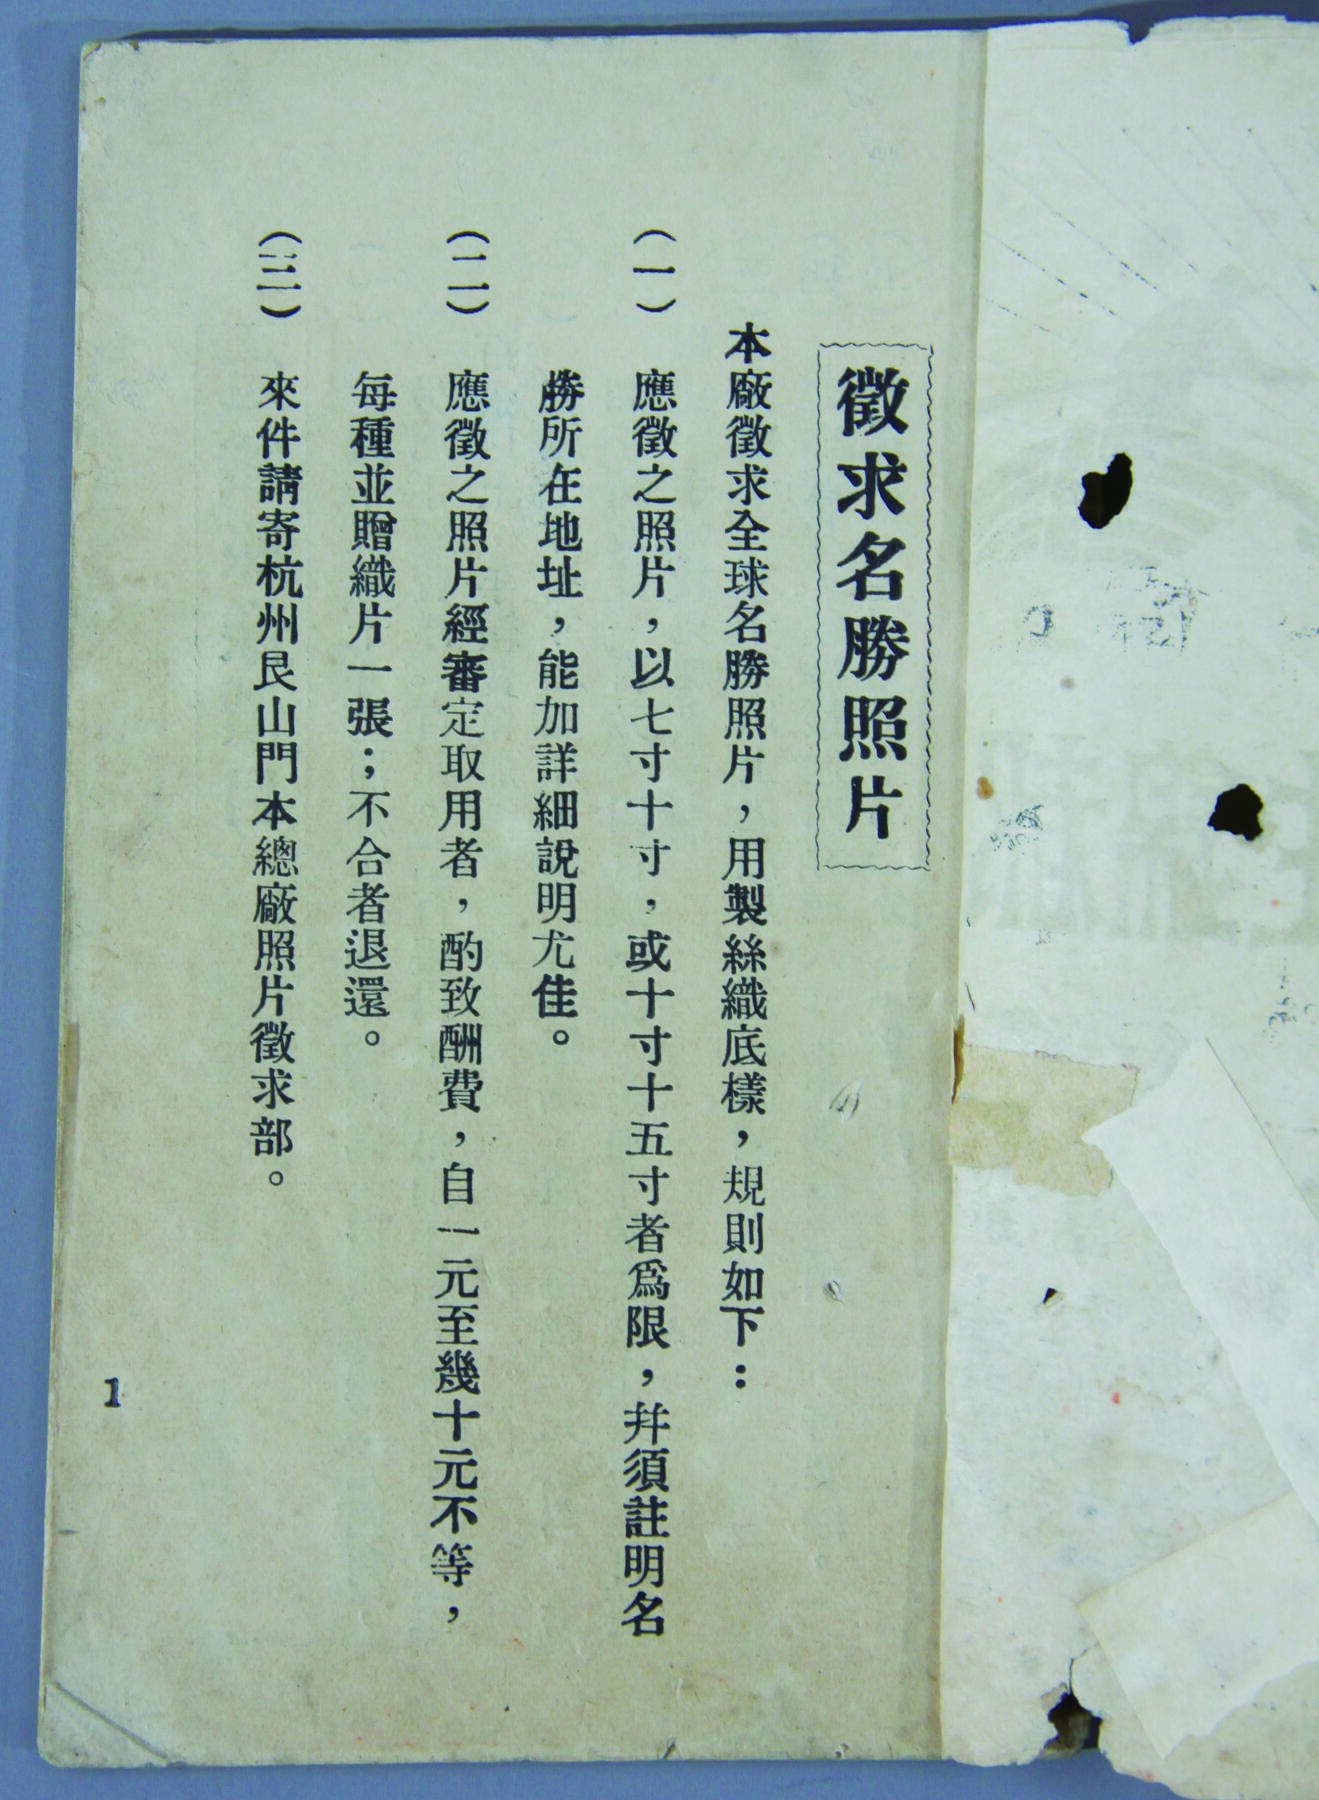 徵求名勝照片
本廠徵求全球名勝照片，用製絲織底樣，規則如下：
（一）應徵之照片，以七寸十寸，或十寸十五寸者爲限，幷須註明名
勝所在地址，能加詳細說明尤佳。
（二）應徵之照片經審定取用者，酌致酬費，自一元至幾十元不等，
每種並贈織片一張；不合者退還。
（三）來件請寄杭州艮山門本總廠照片徵求部。
1